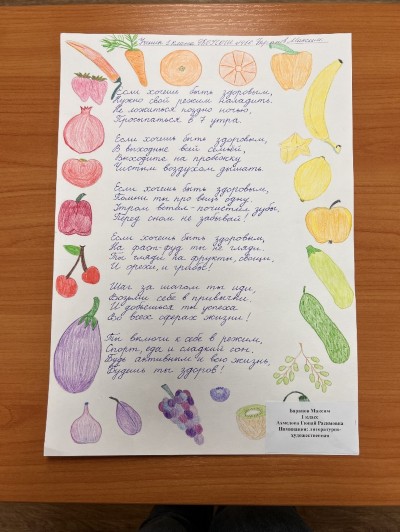 Ученик 1 класса Баранов Максим
Если хочешь быть здоровым,
Нужно свой режим наладить.
Не ложиться поздно ночью,
Просыпаться в 7 утра.
Если хочешь быть здоровым,
В выходные всей семьёй,
Выходите на пробежку
Чистым воздухом дышать.
Если хочешь быть здоровым,
Помни ты про вещь одну
Утром встал - почисти зубы,
Перед сном не забывай!
Если хочешь быть здоровым,
На фаст-фуд ты не гляди.
Ты гляди на фрукты, овощи,
И орехи, и грибы!
Шаг за шагом ты иди,
Возьми себе в привычки.
И добьёшься ты успеха
Во всех сферах жизни!
Ты включи к себе в режим,
Спорт, еда и сладкий сон.
Будь активным и всю жизнь,
Будешь ты здоров!
Баранов Максим
1 класс
Ахмедова Гюнай Расимовна
Номинация: литературно-
художественная